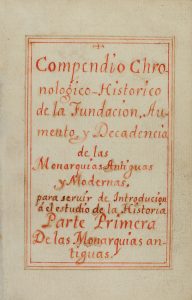 Compendio Chro
nologico-Historico
de la Fundacion, Au-
mento, y Decadencia
de las
Monarquias Antiguas
y Modernas,
para servir de Introducion
á el estudio de la Historia
Parte Primera
De las Monarquias an-
tiguas.